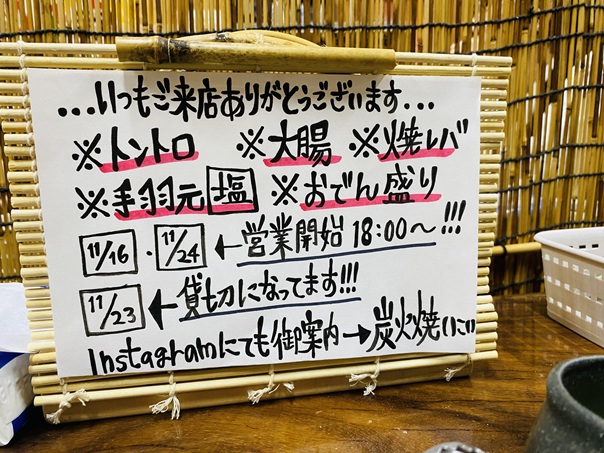 ...いつもご来店ありがとうございます...
※トントロ ※大腸 ※焼レバ
※手羽元塩 ※おでん盛り
11/16・11/24←営業開始18:00〜!!!
11/23←貸切になってます!!!
Instagramにても御案内→炭火焼にこい